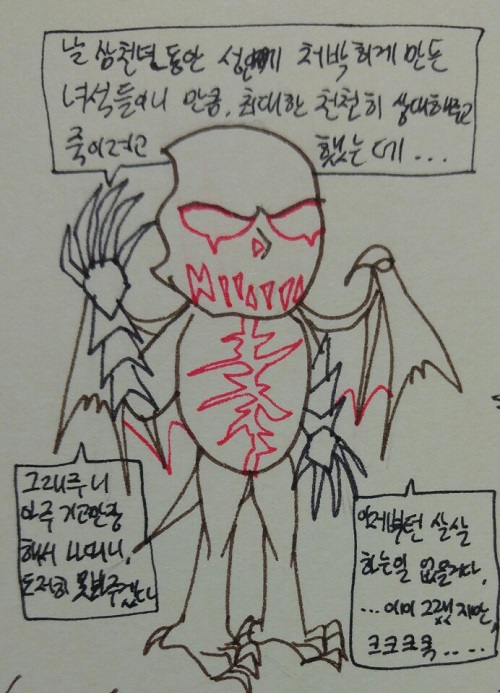 날 삼천년 동안 성에 처박히게 만든
녀석들이니 만큼, 최대한 천천히 상대해주고
죽이려고 했는데...
그래주니
아주 기고만장
해서 나대니,
도저히 못봐주겠다
이제부턴 살살
하는일 없을거다,
...이미 그랬지만,
크크크큭....